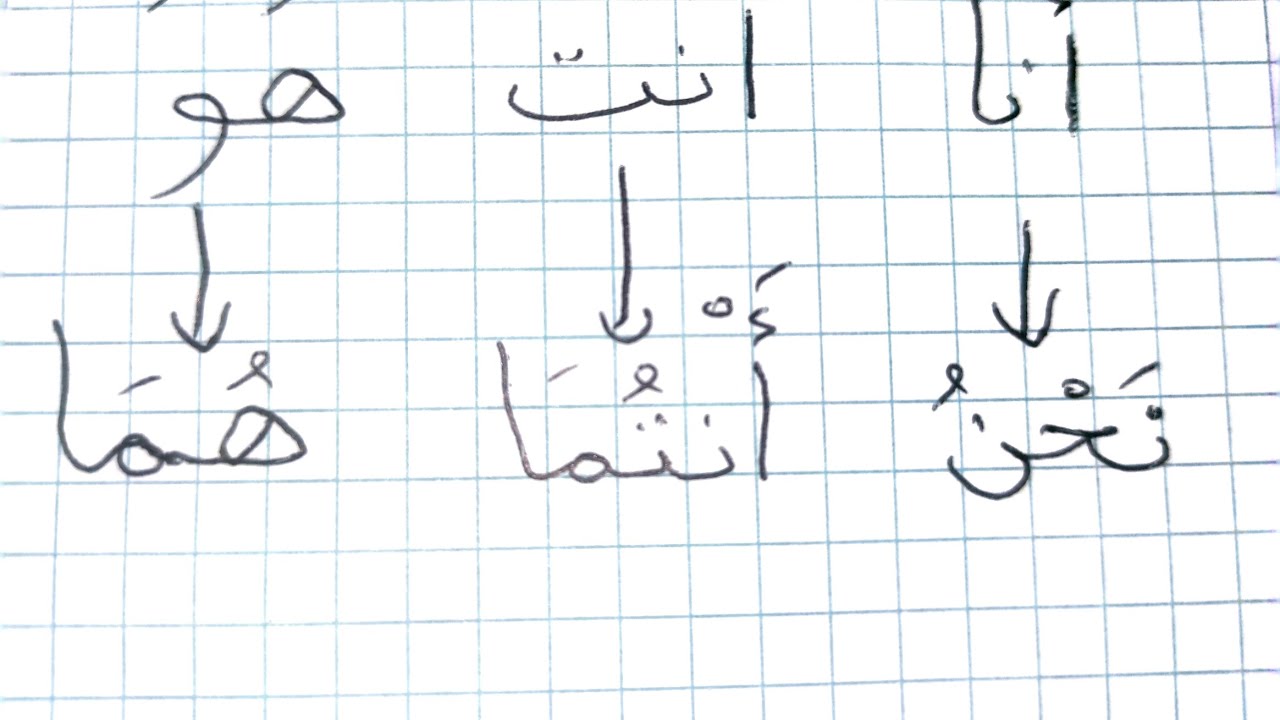 أنا انت هو
نَحْنُ أَنْتُمَا هُمَا